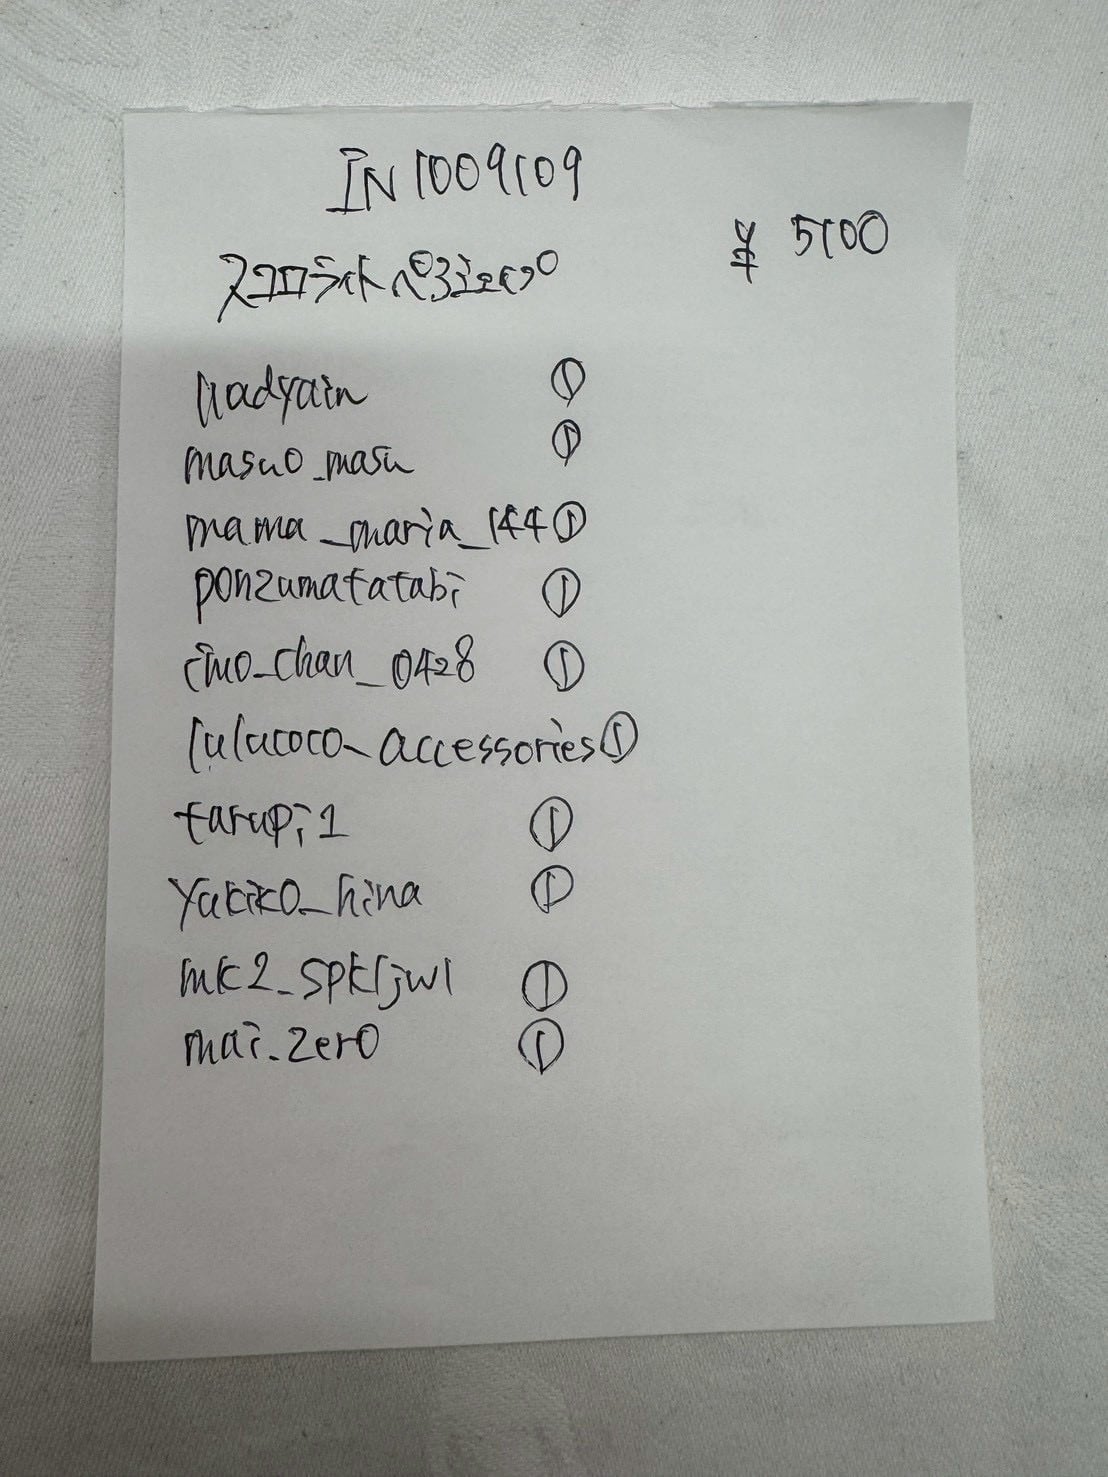 IN1009109
¥ 5100
スコロライト
nadyain ①
masuo_masu ①
mama_maria_144 ①
ponzumatatabi ①
cimo_chan_0428 ①
lulucoco_accessories ①
tarupi1 ①
yukiko_hina ①
mk2_spkljwl ①
mai.zero ①